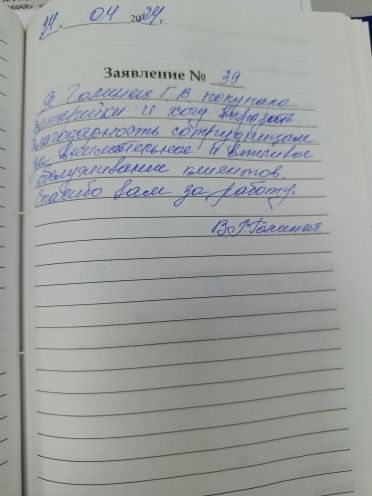 24 " 04 2024 г.
Заявление № 39
Я Г.В. покупала
батарейки и хочу выразать
благодарность сотрудницам
за внимательное и вежливое
обслуживание клиентов.
Спасибо вам за работу.